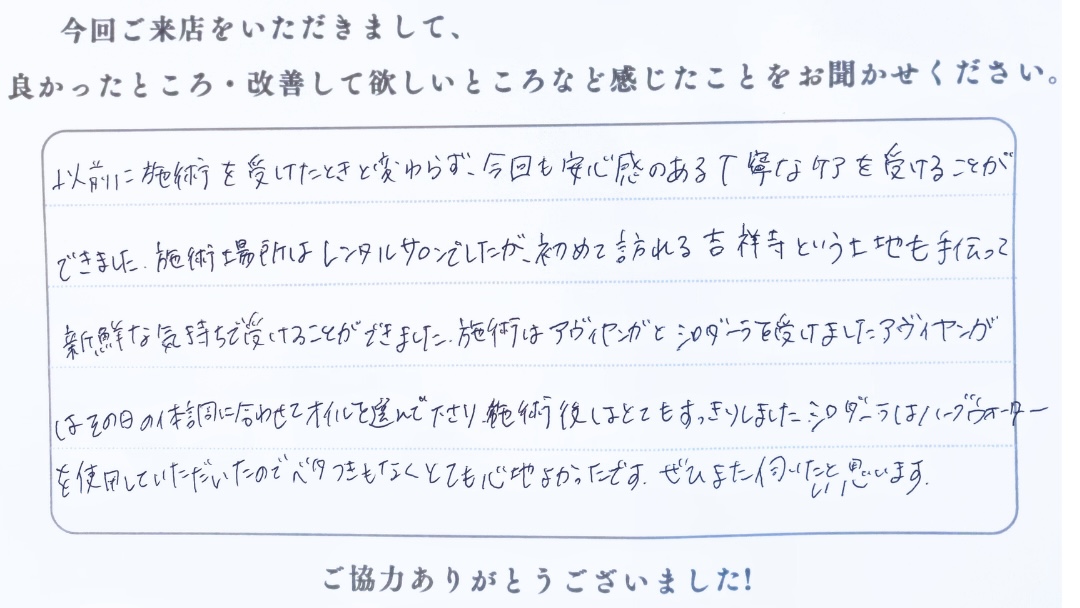 今回ご来店をいただきまして、
良かったところ・改善して欲しいところなど感じたことをお聞かせください。
以前に施術を受けたときと変わらず、今回も安心感のある丁寧なケアを受けることが
できました。施術場所はレンタルサロンでしたが、初めて訪れる吉祥寺という土地も手伝って
新鮮な気持ちで受けることができました。施術はアヴィヤンガとシロダーラを受けましたアヴィヤンガ
はその日の体調に合わせてオイルを選んで下さり、施術後はとてもすっきりしました。シロダーラはハーブウォーター
を使用していただいたのでベタつきもなくとても心地よかったです。ぜひまた伺いたいと思います。
ご協力ありがとうございました!